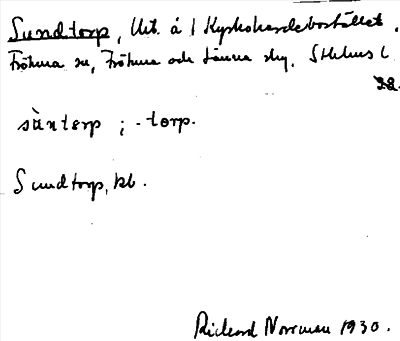 Sundtorp, Utb. å 1 Kyrkoherdebostället.
Frötuna sn, Frötuna och Länna skg, Sthlms l.
22.
sùntɛrp ; -torp.
Sundtorp, kb.
Rickard Norrman 1930.